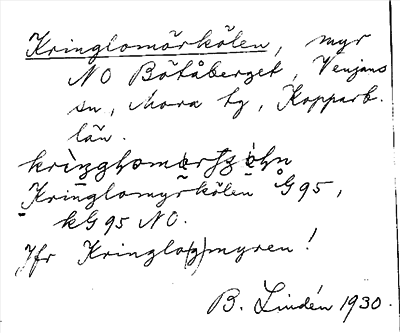 Kringlomörkölen, myr
NO Bötåberget, Venjans
sn, Mora tg, Kopparb.
län.
Kringlomyrkölen Å G95,
kG95 NO.
Jfr Kringlo(g)myren!
B. Lindén 1930.